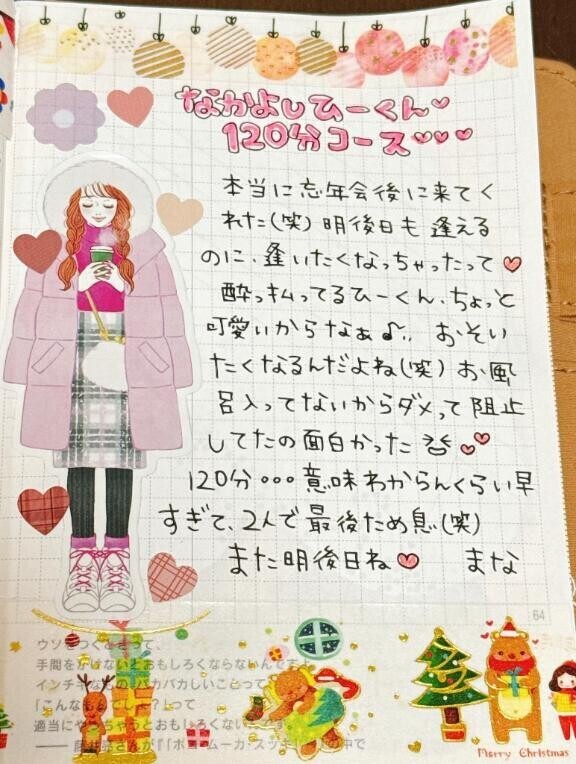 なかよしひーくん♡
120分コース♡♡♡
本当に忘年会後に来てく
れた(笑)明後日も逢える
のに、逢いたくなっちゃったって♥
酔っ払ってるひーくん、ちょっと
可愛いからなぁ♪,, おそい
たくなるんだよね(笑)お風
呂入ってないからダメって阻止
してたの面白かった
120分・・・意味わからんくらい早
すぎて、2人で最後ため息(笑)
また明後日ね♥ まな
64
手間をかけないとおもしろくならないんです
インチキなもの、バカバカしいことって
「こんなもんでしょ?」って
適当にやっちゃうとおもしろくない
Merry Christmas